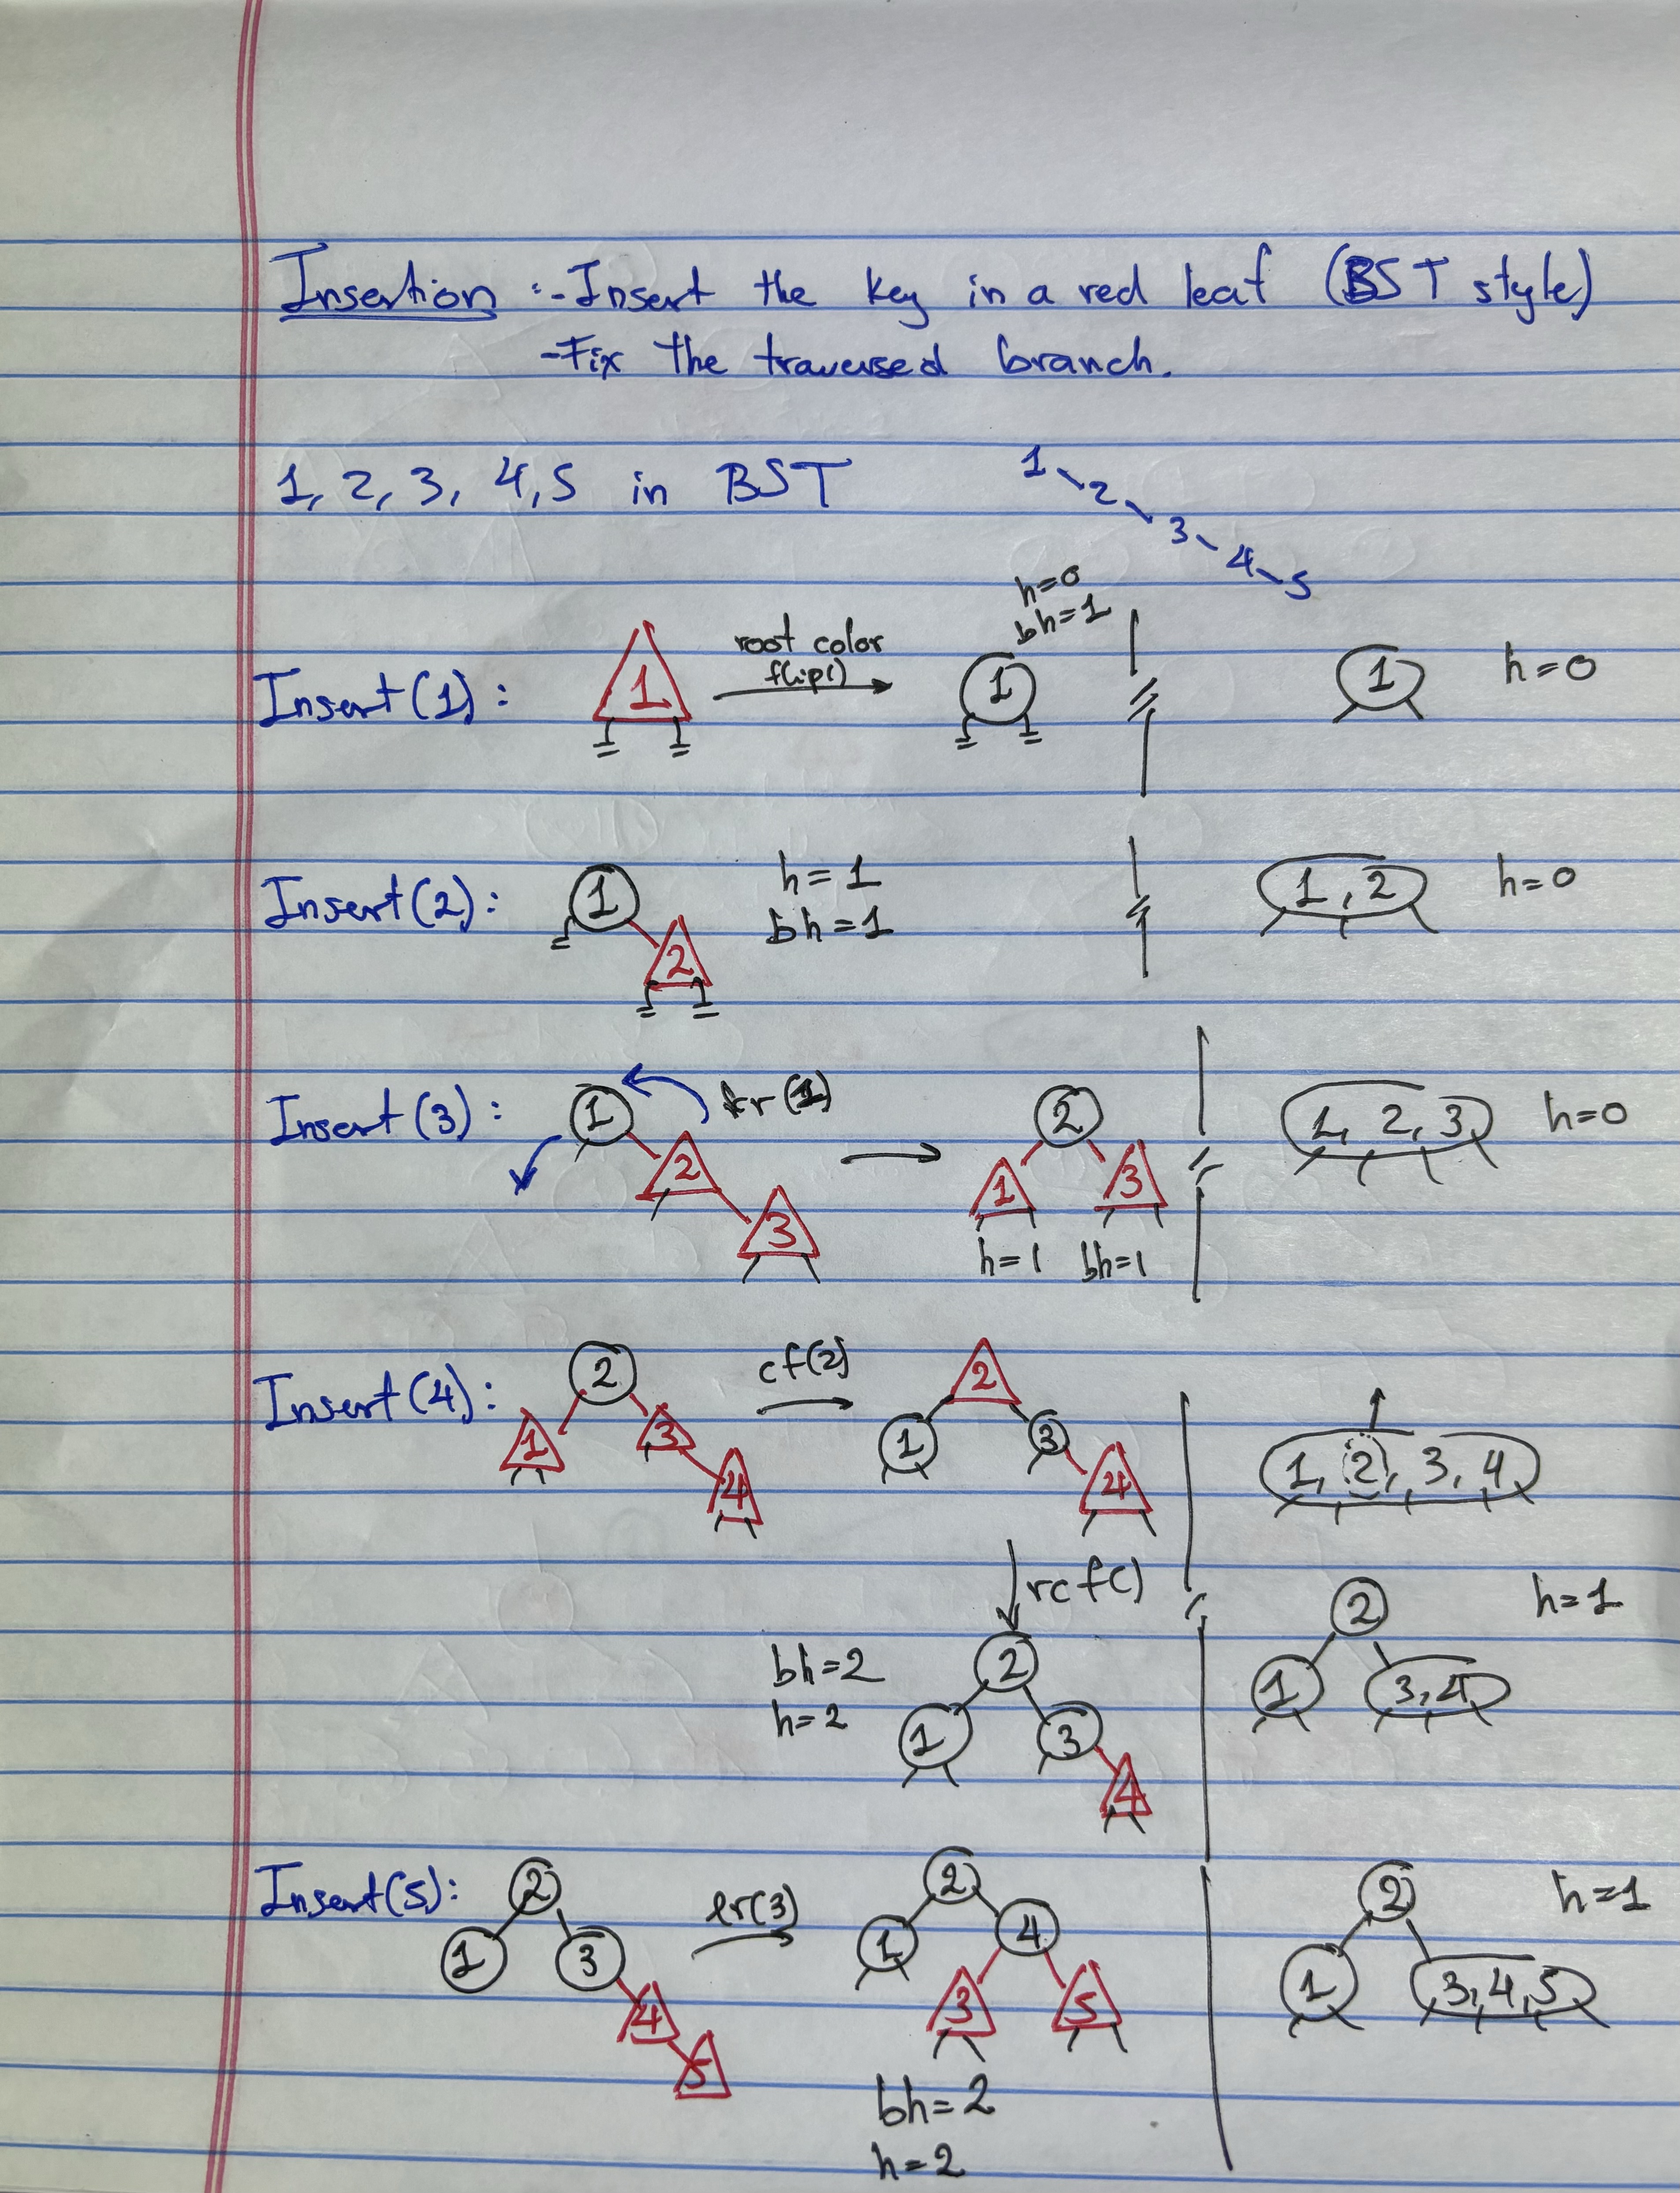 Insertion :- Insert the key in a red leaf (BST style)
- Fix the traversed branch.
1, 2, 3, 4, 5 in BST
1 2 3 4 5
h=0
bh=1
Insert(1): 1 root color flip() 1 1 h=0
Insert(2): 1 2 h=1 bh=1 1, 2 h=0
Insert(3): 1 2 3 2 1 3 1, 2, 3 h=0
h=1 bh=1
Insert(4): 2 1 3 4 cf(2) 2 1 3 4 1, 2, 3, 4
rcf()
bh=2
h=2
2 1 3 4 2 1 3,4 h=1
Insert(5): 2 1 3 4 5 lr(3) 2 1 4 3 5 2 1 3,4,5 h=1
bh=2
h=2